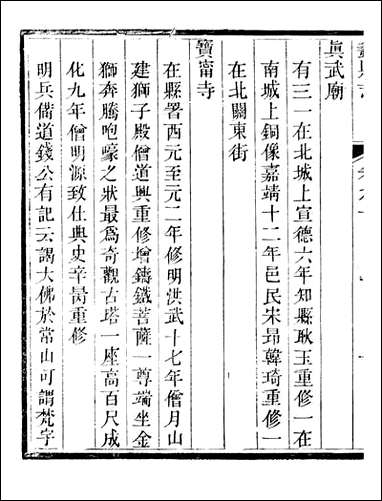 眞武廟
有三一在北城上宣德六年知縣耿玉重修一在
南城上銅像嘉靖十二年邑民宋昻韓琦重修一
在北關東街
寶甯寺
在縣署西元至元二年修明洪武十七年僧月山
建獅子殿僧道興重修增鑄鐵菩薩一尊端坐金
獅奔騰咆嚎之狀最爲奇觀古塔一座高百尺成
化九年僧明源致仕典史辛㫤重修
明兵備道錢公有記云謂大佛於常山可謂梵宇